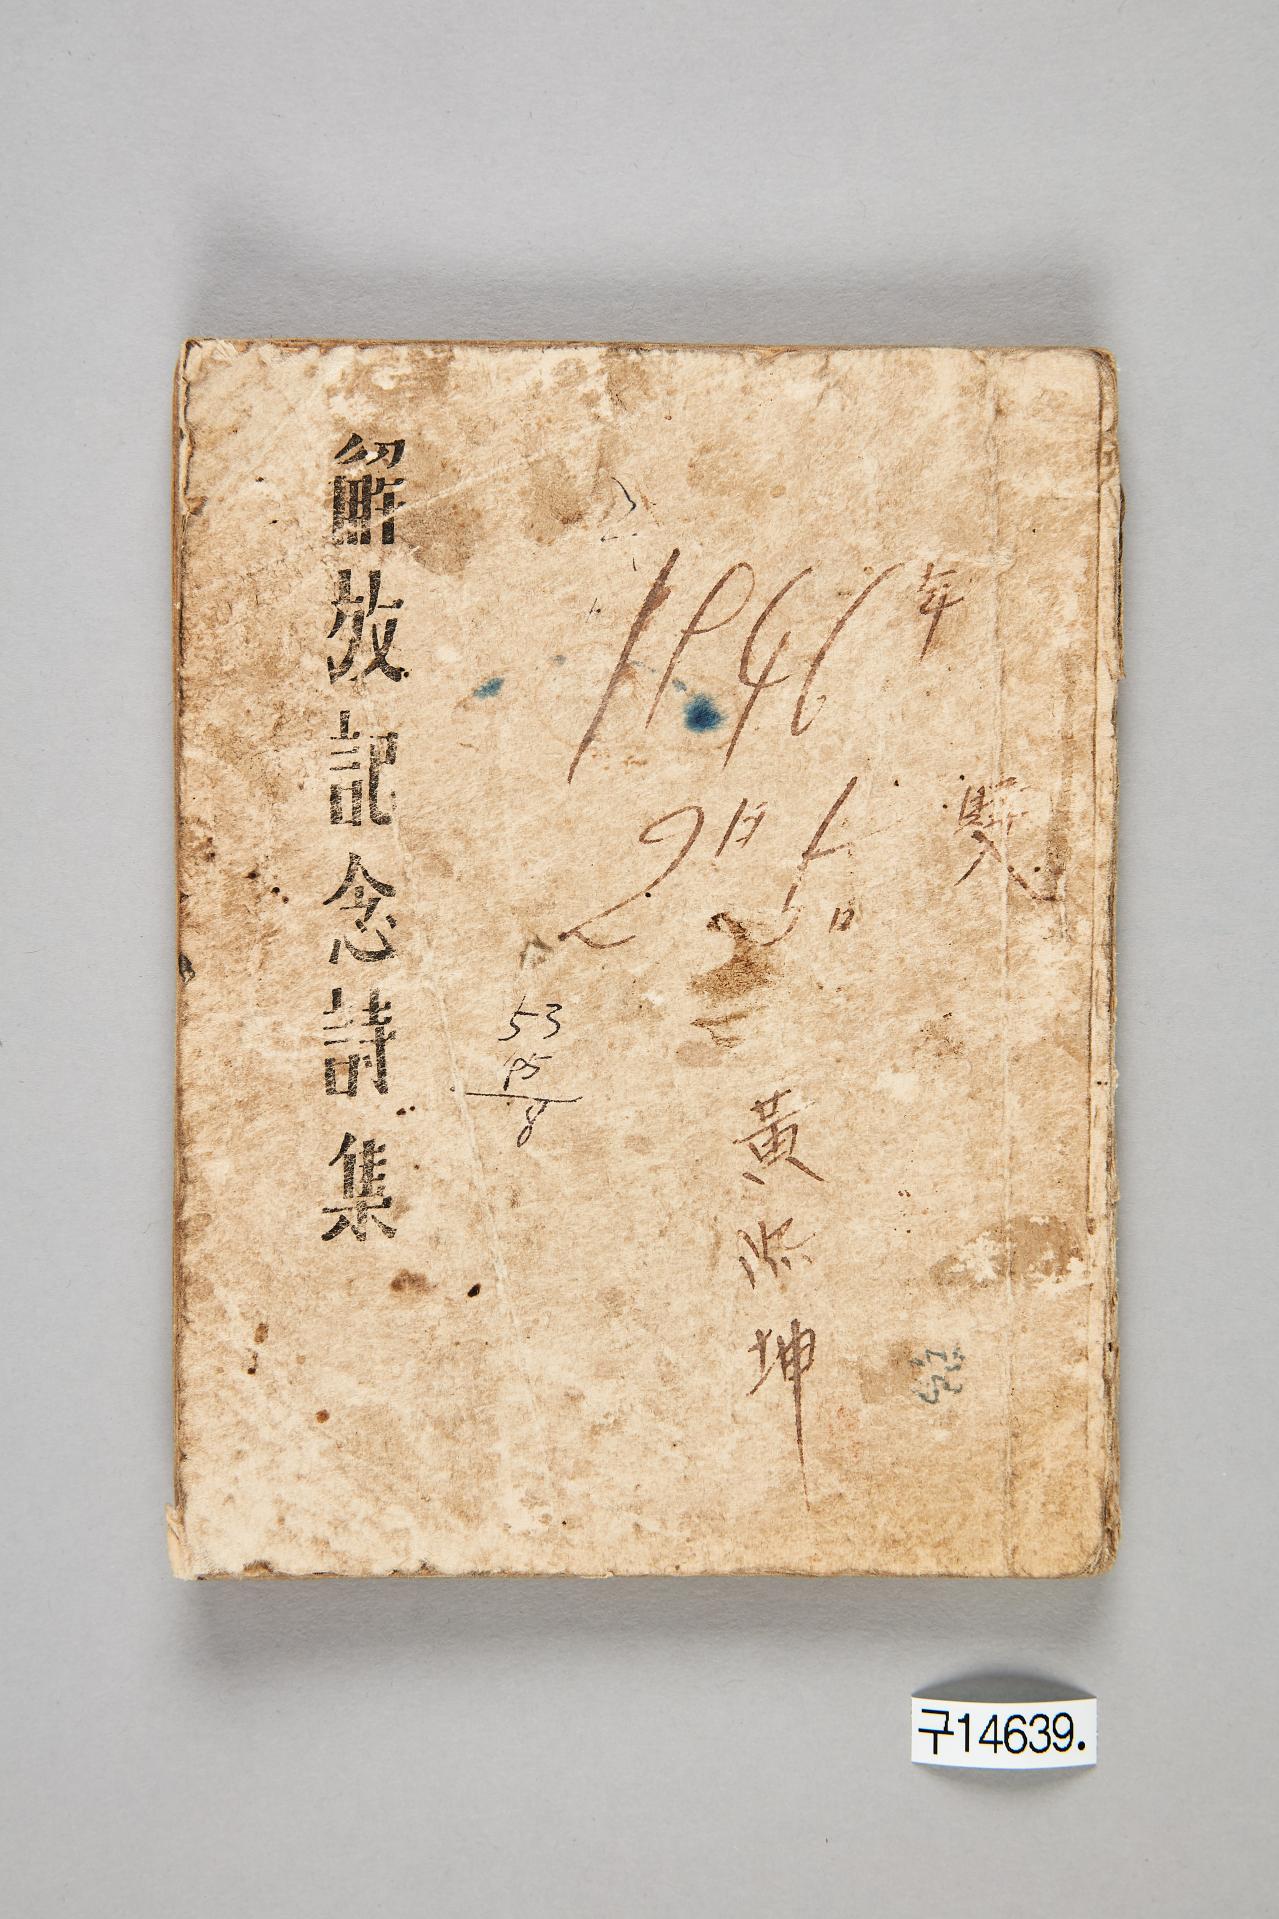 解放記念詩集
1946年
2月5日
黃熙坤
53
45
8
구14639.